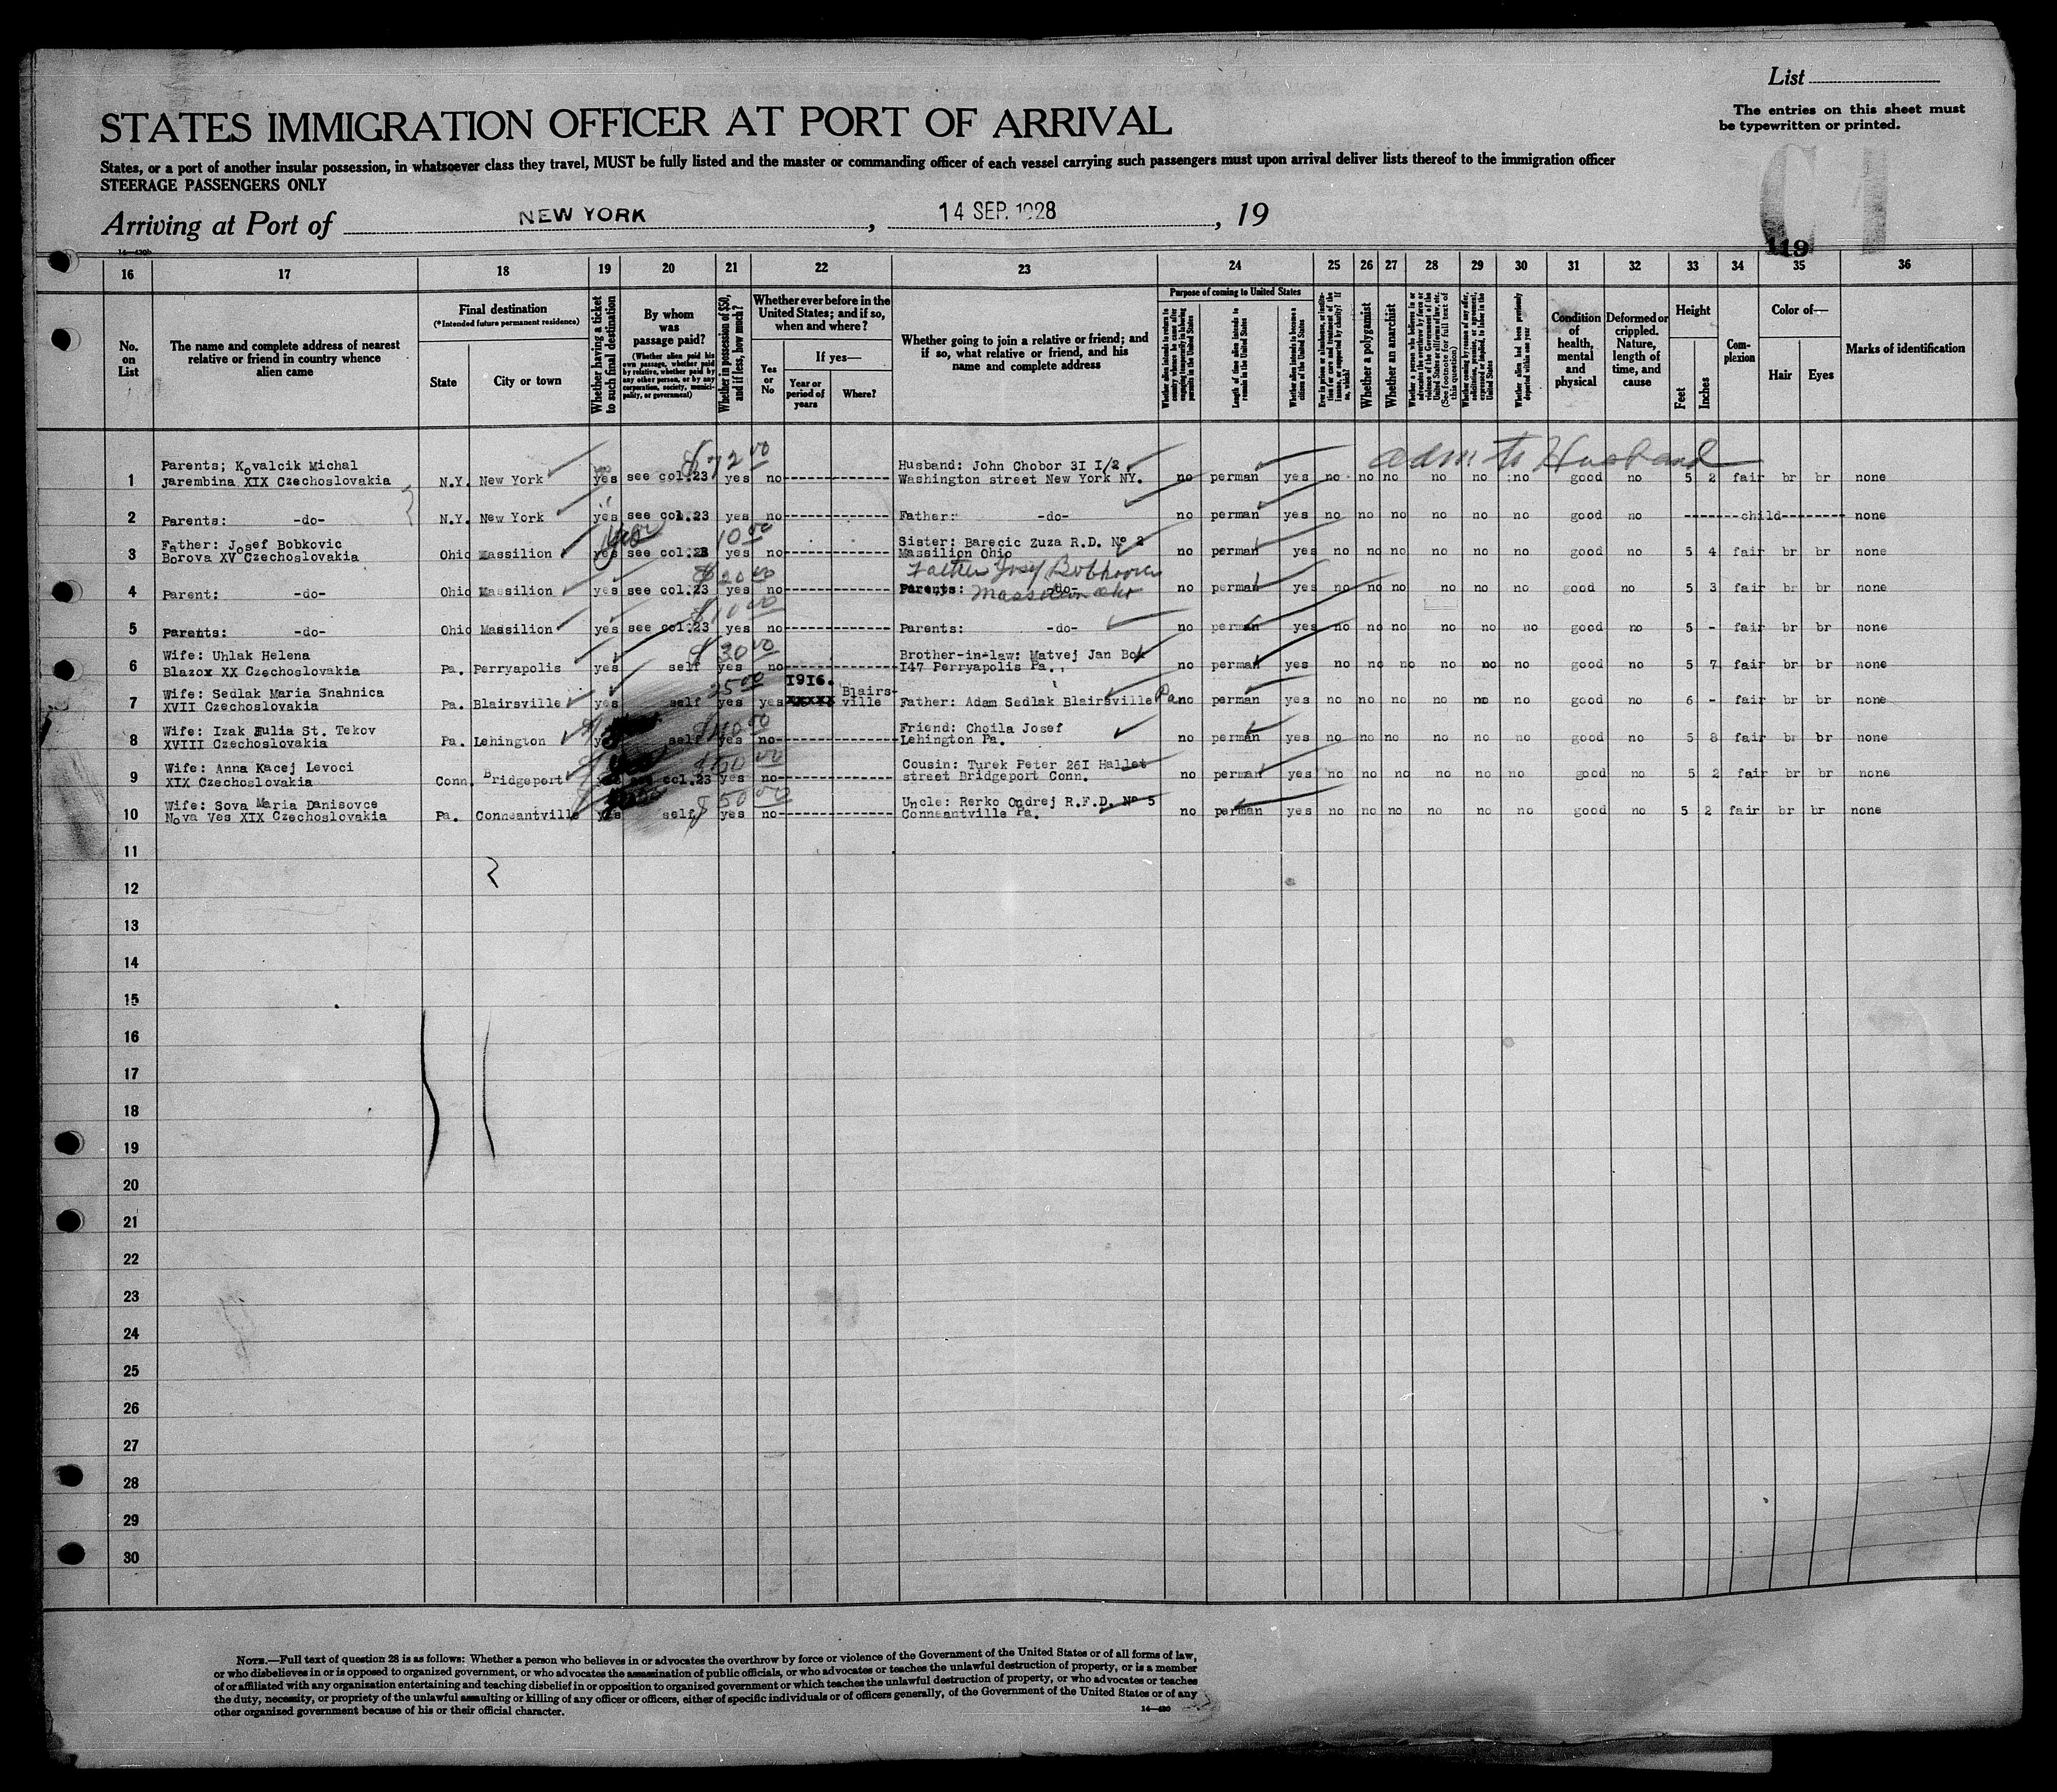 List
The entries on this sheet must
be typewritten or printed.
STATES IMMIGRATION OFFICER AT PORT OF ARRIVAL
States, or a port of another insular possession, in whatsoever class they travel, MUST be fully listed and the master or commanding officer of each vessel carrying such passengers must upon arrival deliver lists thereof to the immigration officer
STEERAGE PASSENGERS ONLY
C 1
Arriving at Port of NEW YORK, 14 SEP. 1928, 19
119
16 17 18 19 20 21 22 23 24 25 26 27 28 29 30 31 32 33 34 35 36
No. on List
The name and complete address of nearest relative or friend in country whence alien came
Final destination
(*Intended future permanent residence)
State
City or town
Whether having a ticket to such final destination
By whom was passage paid?
(Whether alien paid his own passage, whether paid by relative, whether paid by any other person, or by any corporation, society, municipality, or government)
Whether in possession of $50, and if less, how much?
Whether ever before in the United States; and if so, when and where?
Yes or No
If yes—
Year or period of years
Where?
Whether going to join a relative or friend; and if so, what relative or friend, and his name and complete address
Purpose of coming to United States
Length of time alien intends to remain in the United States
Whether alien intends to become a citizen of the United States
Whether a polygamist
Whether an anarchist
Condition of health, mental and physical
Deformed or crippled. Nature, length of time, and cause
Height
Feet
Inches
Complexion
Color of—
Hair
Eyes
Marks of identification
adm to Husband
1 Parents; Kovalcik Michal Jarembina XIX Czechoslovakia N.Y. New York yes see col.23 $72 00 yes no Husband: John Chobor 3I I/2 Washington street New York NY. no perman yes no no no no no no good no 5 2 fair br br none
2 Parents: -do- N.Y. New York yes see col.23 yes no Father: -do- no perman yes no no no no no no good no child none
3 Father: Josef Bobkovic Borova XV Czechoslovakia Ohio Massilion yes see col.23 10 00 yes no Sister: Barecic Zuza R.D. No 2 Massilion Ohio no perman yes no no no no no no good no 5 4 fair br br none
4 Parent: -do- Ohio Massilion yes see col.23 $20 00 yes no Parents: -do- no perman yes no no no no no no good no 5 3 fair br br none
5 Parents: -do- Ohio Massilion yes see col.23 $10 00 yes no Parents: -do- no perman yes no no no no no no good no 5 - fair br br none
6 Wife: Uhlak Helena Blazox XX Czechoslovakia Pa. Perryapolis yes self $30 00 yes no Brother-in-law: Matvej Jan Box I47 Perryapolis Pa. no perman yes no no no no no no good no 5 7 fair br br none
7 Wife: Sedlak Maria Snahnica XVII Czechoslovakia Pa. Blairsville yes self 25 00 yes yes 1916. xxxxx Blairsville Father: Adam Sedlak Blairsville Pa no perman yes no no no no no no good no 6 - fair br br none
8 Wife: Izak Julia St. Tekov XVIII Czechoslovakia Pa. Lehington yes self yes no Friend: Choila Josef Lehington Pa. no perman yes no no no no no no good no 5 8 fair br br none
9 Wife: Anna Kacej Levoci XIX Czechoslovakia Conn. Bridgeport yes see col.23 yes no Cousin: Turek Peter 26I Hallet street Bridgeport Conn. no perman yes no no no no no no good no 5 2 fair br br none
10 Wife: Sova Maria Danisovce Nova Ves XIX Czechoslovakia Pa. Conneantville yes self $50 00 yes no Uncle: Rerko Ondrej R.F.D. No 5 Conneantville Pa. no perman yes no no no no no no good no 5 2 fair br br none
11
12
13
14
15
16
17
18
19
20
21
22
23
24
25
26
27
28
29
30
NOTE.—Full text of question 28 is as follows: Whether a person who believes in or advocates the overthrow by force or violence of the Government of the United States or of all forms of law,
or who disbelieves in or is opposed to organized government, or who advocates the assassination of public officials, or who advocates or teaches the unlawful destruction of property, or is a member
of or affiliated with any organization entertaining and teaching disbelief in or opposition to organized government or which teaches the unlawful destruction of property, or who advocates or teaches
the duty, necessity, or propriety of the unlawful assaulting or killing of any officer or officers, either of specific individuals or of officers generally, of the Government of the United States or of any
other organized government because of his or their official character.